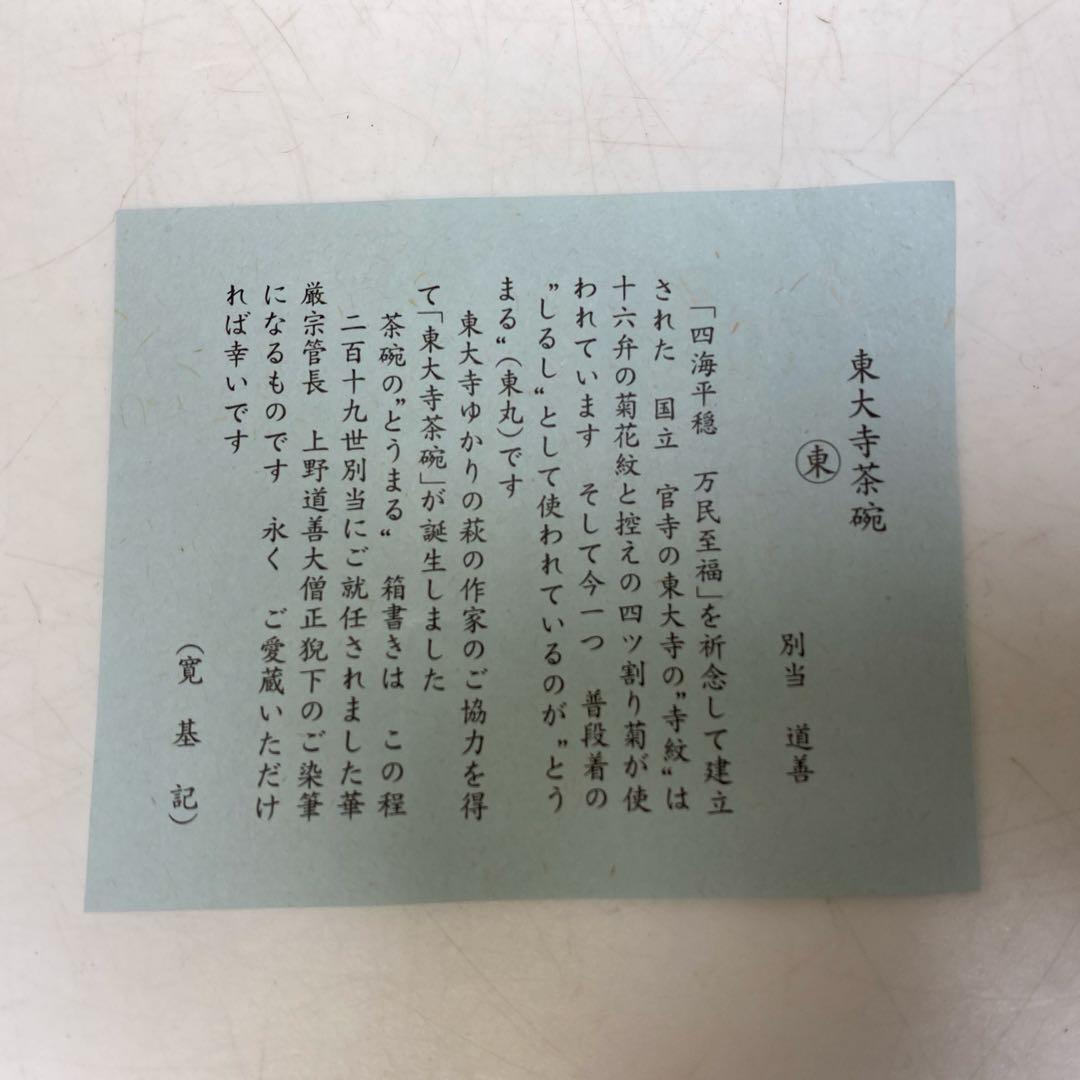 東大寺茶碗
東
別当 道善
「四海平穏 万民至福」を祈念して建立
された 国立 官寺の東大寺の”寺紋“は
十六弁の菊花紋と控えの四ツ割り菊が使
われています そして今一つ 普段着の
”しるし“として使われているのが”とう
まる“(東丸)です
東大寺ゆかりの萩の作家のご協力を得
て「東大寺茶碗」が誕生しました
茶碗の”とうまる“ 箱書きは この程
二百十九世別当にご就任されました華
厳宗管長 上野道善大僧正猊下のご染筆
になるものです 永く ご愛蔵いただけ
れば幸いです
(寛基記)